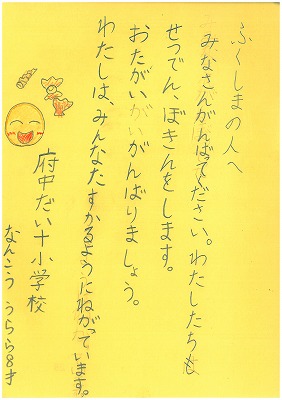 ふくしまの人へ
みなさんがんばてください。わたしたちも
せつでん、ぼきんをします。
おたがいがんばりましょう。
わたしは、みんなたすかるようにねがっています。
府中だい十小学校
なんこう うらら8才